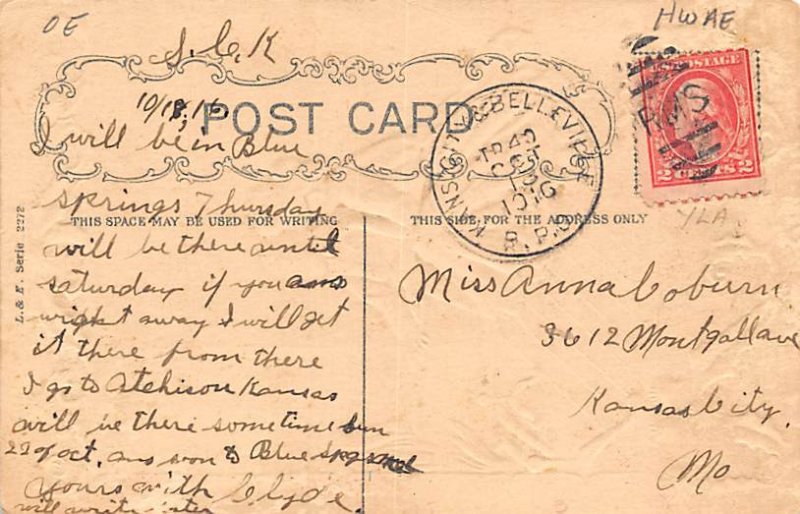 OE
HWAE
S, C, K
10/18, 16
POST CARD
I will be in Blue
Springs Thursday
THIS SPACE MAY BE USED FOR WRITING
will be there until
saturday if you ans
wright away I will get
it there from there
I go to Atchison Kansas
will be there sometime sun
22 of oct, ans soon to Blue Spgs and
yours with Clyde
will write
L. & E. Serie 2272
KANS. CITY & BELLEVILLE
TR 40
OCT
18
1916
R.P.O.
RMS
U.S. POSTAGE
2 CENTS 2
YLA
THIS SIDE FOR THE ADDRESS ONLY
Miss Anna Coburn
3612 Montgall ave
Kansas City.
Mo